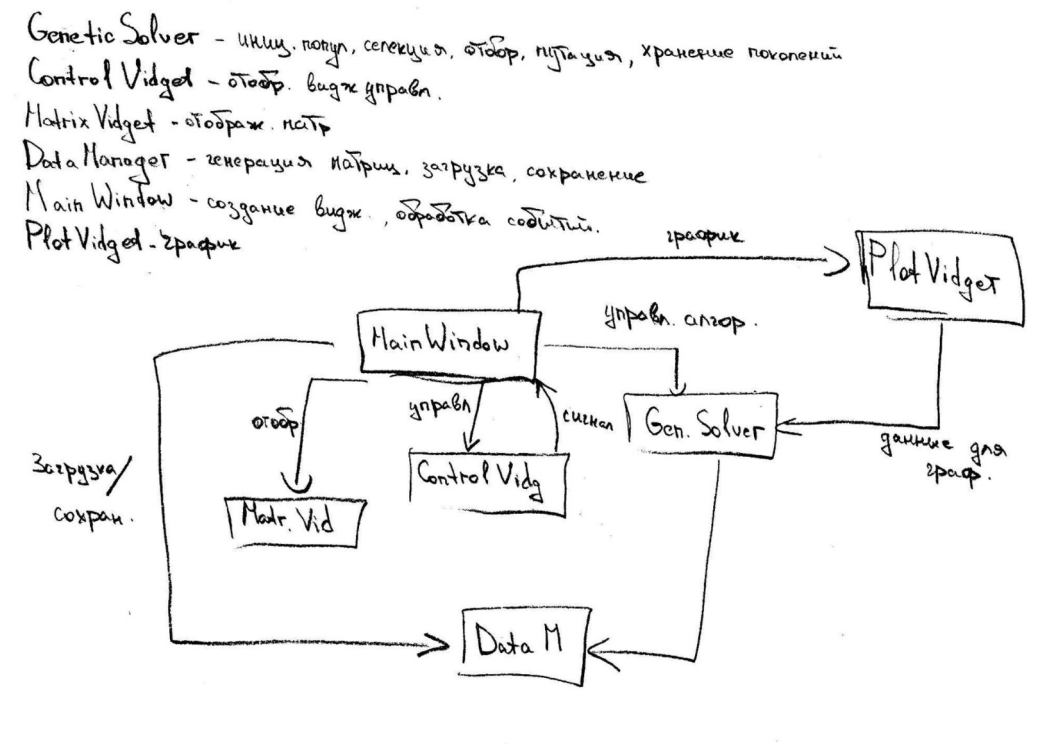 Genetic Solver - иниц. попул, селекция, отбор, мутация, хранение поколений
Control Vidget - отобр. видж управл.
Matrix Vidget - отображ. матр
Data Manager - генерация матриц, загрузка, сохранение
Main Window - создание видж., обработка событий.
Plot Vidget - график
график
Plot Vidget
управл. алгор.
Main Window
отобр
управл
сигнал
Gen. Solver
данные для
граф.
Загрузка/
сохран.
Control Vidg
Matr. Vid
Data M